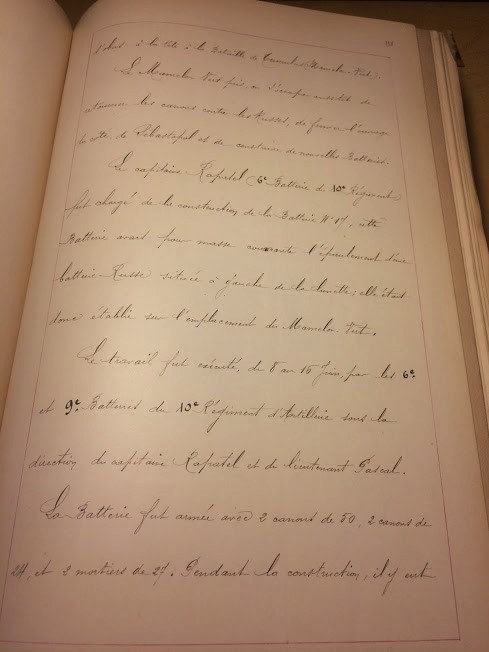 d'obus à la tête à la Bataille de (Mamelon-Vert).
Le Mamelon Vert pris, on s'occupa aussitôt de
retourner les canons contre les Russes, de fermer l'ouvrage
du côté de Sébastopol et de construire de nouvelles Batteries.
Le capitaine Rapatel (6e Batterie du 10e Régiment)
fut chargé de la construction de la Batterie N° 17, cette
Batterie avait pour masse couvrante l'épaulement d'une
batterie Russe située à gauche de la lunette; elle était
donc établie sur l'emplacement du Mamelon-Vert.
Le travail fut exécuté, du 8 au 15 Juin, par les 6e.
et 9e. Batteries du 10e Régiment d'Artillerie sous la
direction du capitaine Rapatel et du lieutenant Pascal.
La Batterie fut armée avec 2 canons de 50, 2 canons de
24, et 2 mortiers de 27. Pendant la construction, il y eut